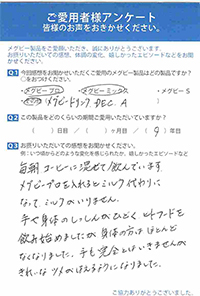 ご愛用者様アンケート
皆様のお声をおきかせください。
メグビー製品をご愛顧いただき、誠にありがとうございます。
お摂りいただいての感想、体調の変化、嬉しかったエピソードなどをお聞かせください。
Q1 今回感想をお聞かせいただくご愛用のメグビー製品はどの製品ですか?
○をおつけください。
・メグビープロ ・メグビーミックス ・メグビーS
・その他 メグビードリンク DEC A
Q2 この製品をどのくらいの期間ご愛用いただいていますか?
( )日目 / ( )ヶ月目 / ( 9 )年目
Q3 お摂りいただいての感想をお聞かせください。
例:いつ頃からどのような変化を感じられたか、嬉しかったエピソードなど
毎朝コーヒーに混ぜて飲んでいます
メグビープロを入れるとミルク代わりに
なってミルクがいりません。
手や身体のしっしんがひどくヒトフードを
飲み始めましたが身体の方はほとんど
なくなりました。手も完全とはいきませんが
きれいなツメがはえるようになりました。
ご協力ありがとうございました。